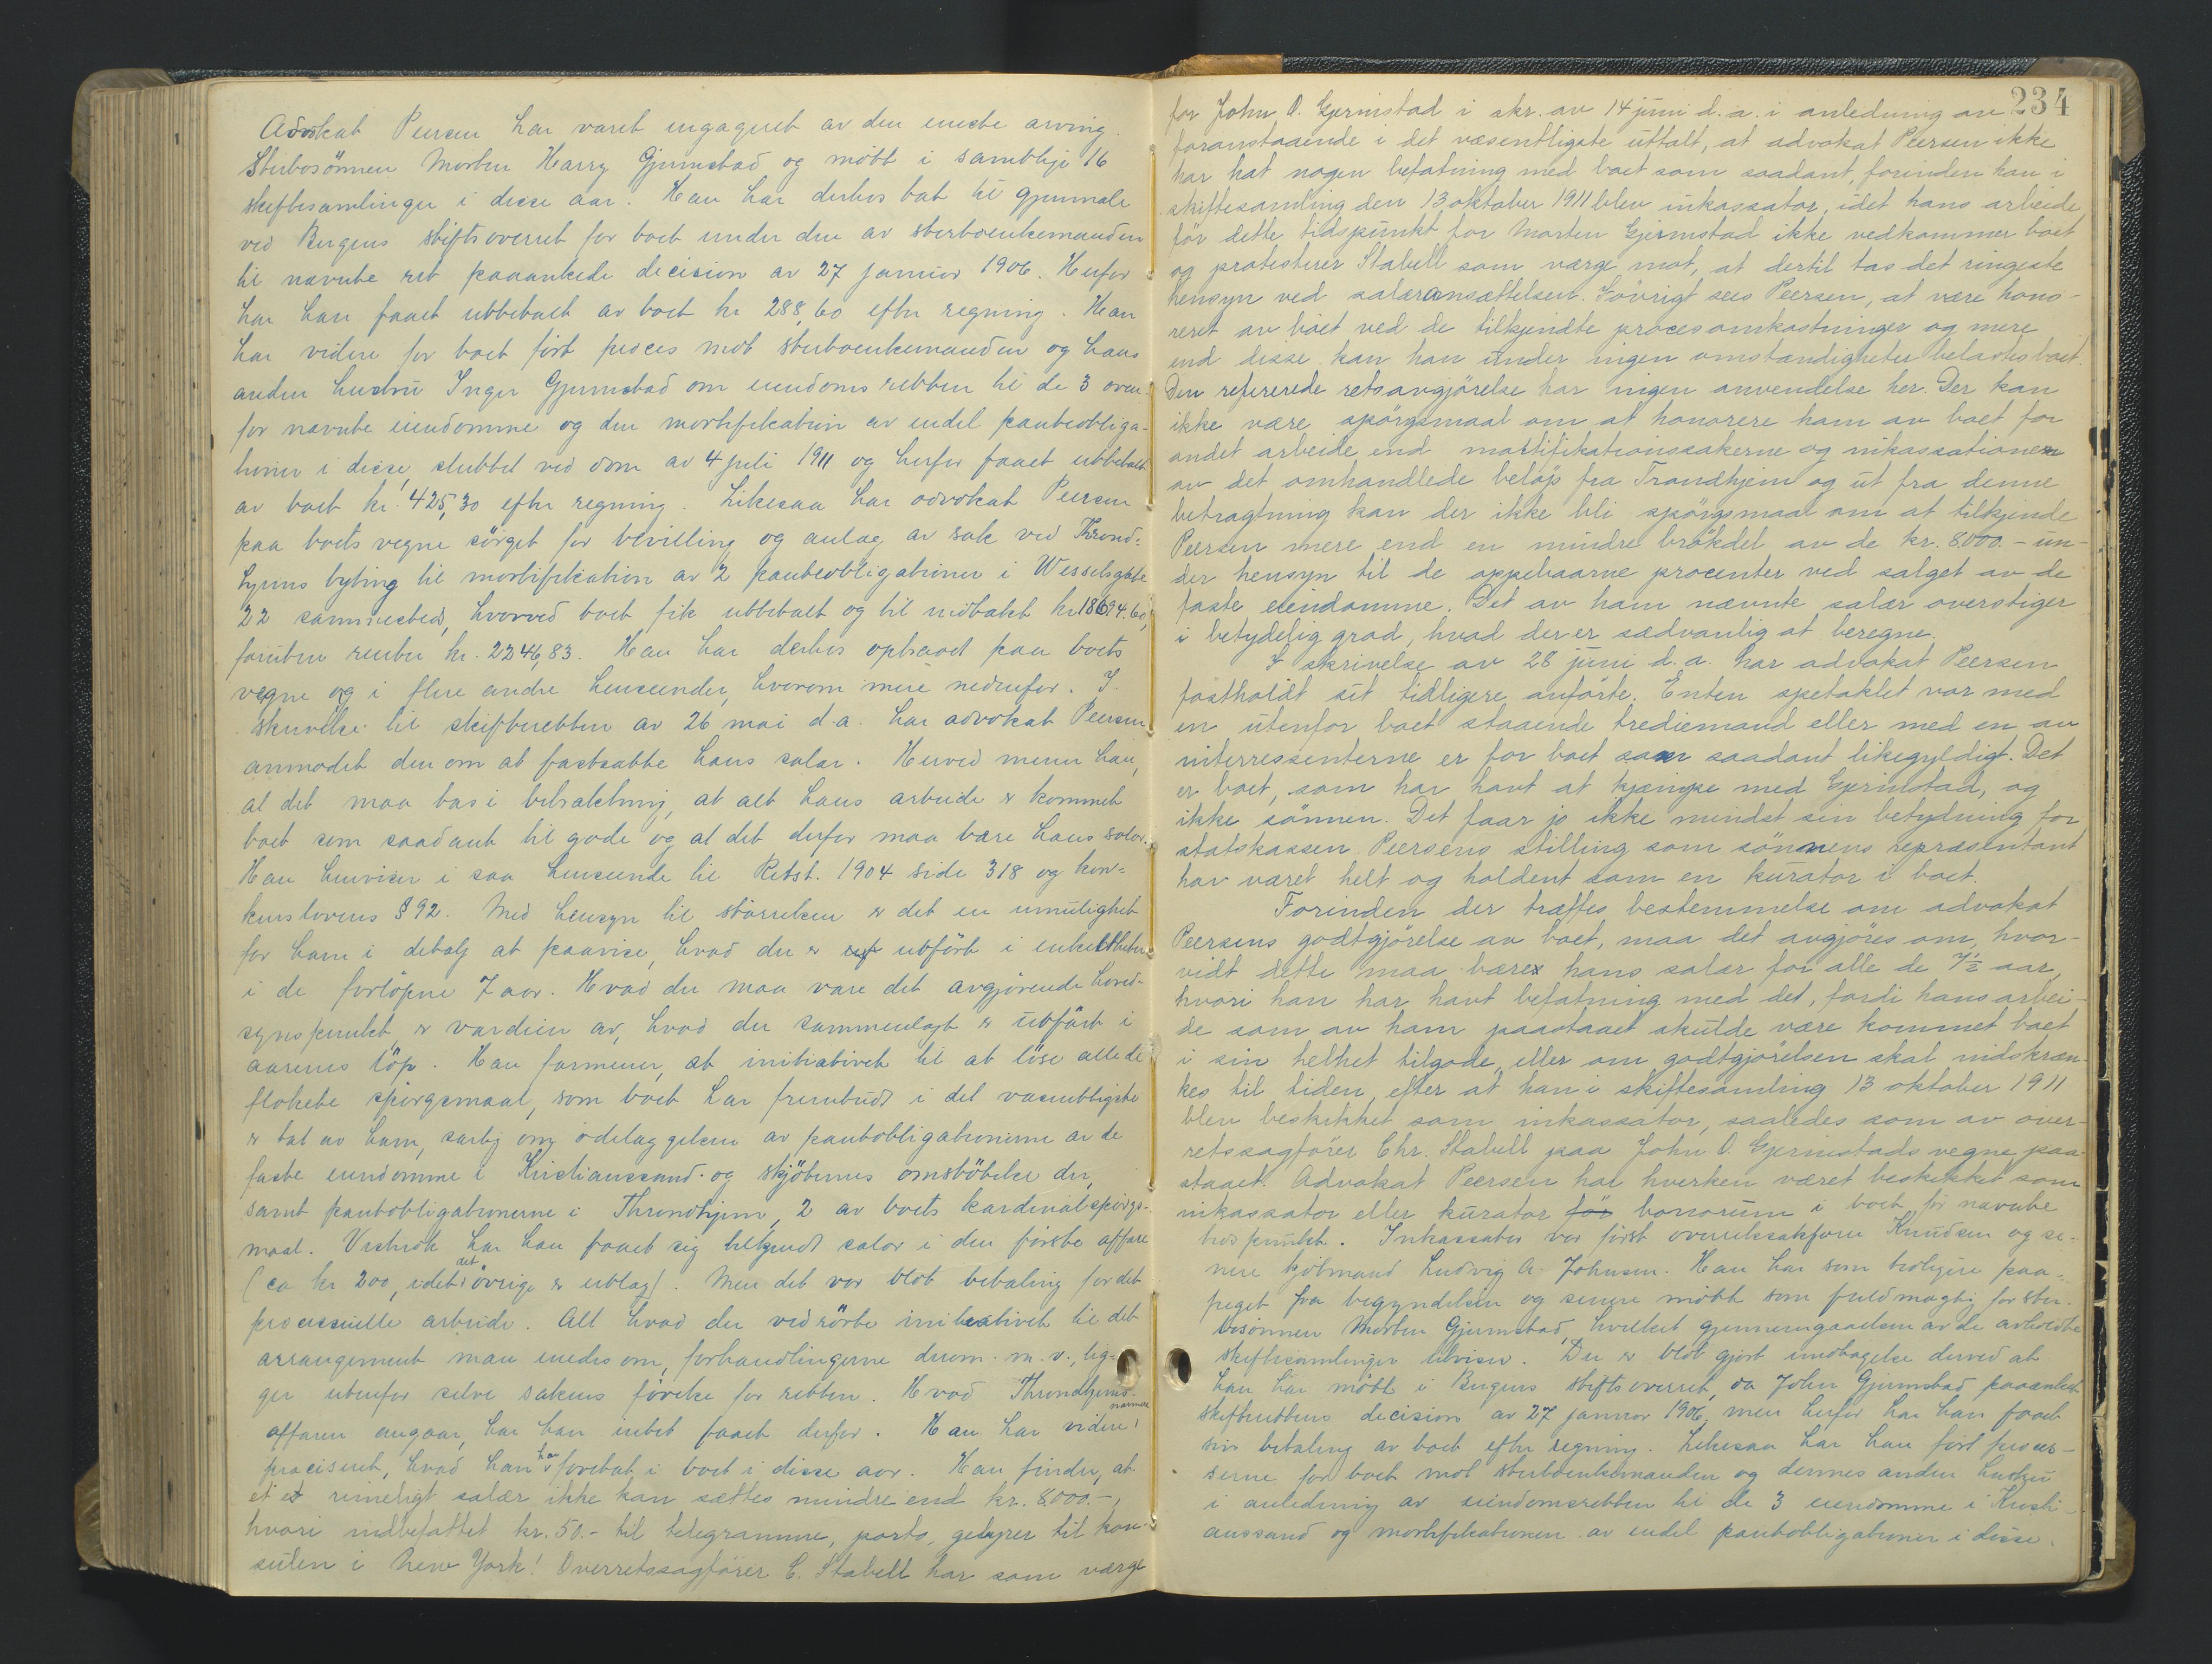 Advokat Peersen har været engageret av den eneste arving
Sterbosönnen Morten Harry Gjermstad og möbt i samtlige 16
skiftesamlinger i disse aar. Han har derhos tat til gjenmæle
ved Bergens stiftsoverret for boet under den av sterboenkemanden
til nævnte ret paaankede decision av 27 januar 1906. Herfor
har han faaet utbetalt av boet kr 288,60 efter regning. Han
har videre for boet fört proces mot sterboenkemanden og hans
anden hustru Inger Gjermstad om eiendomsretten til de 3 oven-
for nævnte eiendomme og den mortifikation av endel panteobliga-
tioner i disse, sluttet ved dom av 4 juli 1911 og herfor faaet utbetalt
av boet kr. 425,30 efter regning. Likesaa har advokat Peersen
paa boets vegne sörget for bevilling og anlæg av sak ved Thrond-
hjems byting til mortifikation av 2 panteobligationer i Wesselsgate
22 sammesteds, hvorved boet fik utbetalt og til indtækt kr 18694.60,
foruten renter kr. 2246,83. Han har derhos optraadt paa boets
vegne og i flere andre henseender, hvorom mere nedenfor. I
skrivelse til skifteretten av 26 mai d.a. har advokat Peersen
anmodet den om at fastsætte hans salær. Herved mener han,
at det maa tas i betraktning, at alt hans arbeide er kommet
boet som saadant til gode og at det derfor maa bære hans salær.
Han henviser i saa henseende til Retst. 1904 side 318 og kon-
kurslovens § 92. Med hensyn til störrelsen er det en umulighet
for ham i detalj at paavise, hvad der er utfört i enkeltheter
i de forlöpne 7 aar. Hvad der maa være det avgjörende hoved-
synspunkt, er værdien av, hvad der sammenlagt er utfört i
aarenes löp. Han formener, at initiativet til at löse alle de
flokete spörgsmaal, som boet har frembudt i det væsentligste
er tat av ham, særlig om ödelæggelsen av pantobligationerne av de
faste eiendomme i Kristianssand og skjöternes omstötelse der,
samt pantobligationerne i Throndhjem, 2 av boets kardinalspörgs-
maal. Vistnok har han faaet sig tilkjendt salær i den förste affære
(ca kr 200, idet det övrige er utlæg). Men det var blot betaling for det
processuelle arbeide. Alt hvad der vedrörte initiativet til det
arrangement man enedes om, forhandlingerne derom m. v., lig-
ger utenfor selve sakens förelse for retten. Hvad Throndhjems-
affæren angaar, har han intet faaet derfor. Han har videre nærmere
præciseret, hvad han har foretat i boet i disse aar. Han finder, at
et et rimeligt salær ikke kan sættes mindre end kr. 8.000.-,
hvori indbefattet kr. 50.- til telegramme, porto, gebyrer til kon-
sulen i New York! Overretssagförer C. Stabell har som værge
234
for John O. Gjermstad i skr. av 14 juni d. a. i anledning av
foranstaaende i det væsentligste uttalt, at advokat Peersen ikke
har hat nogen befatning med boet som saadant, forinden han i
skiftesamling den 13 oktober 1911 blev inkassator, idet hans arbeide
för dette tidspunkt for Morten Gjermstad ikke vedkommer boet
og protesterer Stabell som værge mot, at dertil tas det ringeste
hensyn ved salæransættelsen. Iövrigt sees Peersen, at være hono-
reret av boet ved de tilkjendte procesomkostninger og mere
end disse kan han under ingen omstændigheter belastes boet.
Den refererede retsavgjörelse har ingen anvendelse her. Der kan
ikke være spörgsmaal om at honorere ham av boet for
andet arbeide end mortifikationssakerne og inkassationen
av det omhandlede belöp fra Trondhjem og ut fra denne
betragtning kan der ikke bli spörgsmaal om at tilkjende
Peersen mere end en mindre brökdel av de kr. 8.000.- un-
der hensyn til de oppebaarne procenter ved salget av de
faste eiendomme. Det av ham nævnte salær overstiger
i betydelig grad, hvad der er sædvanlig at beregne.
I skrivelse av 28 juni d. a. har advokat Peersen
fastholdt sit tidligere anförte. Enten spetaklet var med
en utenfor boet staaende trediemand eller med en av
interressenterne er for boet som saadant likegyldigt. Det
er boet, som har havt at kjæmpe med Gjermstad, og
ikke sönnen. Det faar jo ikke mindst sin betydning for
statskassen. Peersens stilling som sönnens repræsentant
har været helt og holdent som en kurator i boet.
Forinden der træffes bestemmelse om advokat
Peersens godtgjörelse av boet, maa det avgjöres om, hvor-
vidt dette maa bære hans salær for alle de 7½ aar,
hvori han har havt befatning med det, fordi hans arbei-
de som av ham paastaaet skulde være kommet boet
i sin helhet tilgode, eller om godtgjörelsen skal indskræn-
kes til tiden, efter at han i skiftesamling 13 oktober 1911
blev beskikket som inkassator, saaledes som av over-
retssagförer Chr. Stabell paa John O. Gjermstads vegne paa-
staaet. Advokat Peersen har hverken været beskikket som
inkassator eller kurator för bonorum i boet för nævnte
tidspunkt. Inkassator var först overretssakförer Knudsen og se-
nere kjöbmand Ludvig A. Johnsen. Han har som tidligere paa-
peget fra begyndelsen og senere möbt som fuldmægtig for ster-
bosönnen Morten Gjermstad, hvilket gjennemgaaelsen av de avholdte
skiftesamlinger utviser. Der er blot gjort undtagelse derved at
han har möbt i Bergens stiftsoverret, da John Gjermstad paaankede
skifterettens decision av 27 januar 1906, men herfor har han faaet
sin betaling av boet efter regning. Likesaa har han fört proces-
serne for boet mot sterboenkemanden og dennes anden hustru
i anledning av eiendomsretten til de 3 eiendomme i Kristi-
anssand og mortifikationen av endel pantobligationer i disse.